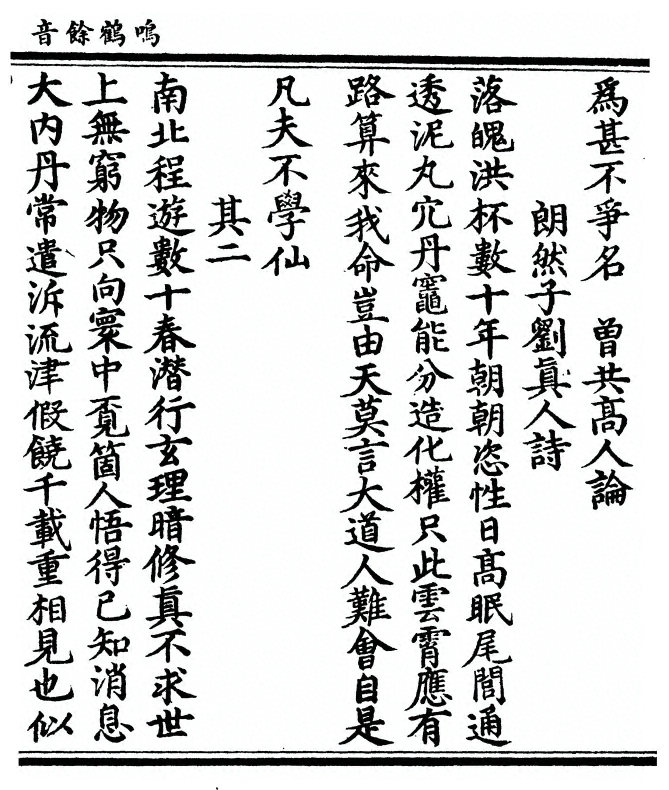 鳴鶴餘音
為甚不爭名　曾共髙人論
朗然子劉真人詩
落魄洪杯數十年朝朝恣性日髙眠尾閭通
透泥丸穴丹竈能分造化權只此雲霄應有
路算來我命豈由天莫言大道人難會自是
凡夫不學仙
其二
南北程遊數十春潜行玄理暗修真不求世
上無窮物只向寰中覔箇人悟得已知消息
大内丹常遣泝流津假饒千載重相見也似